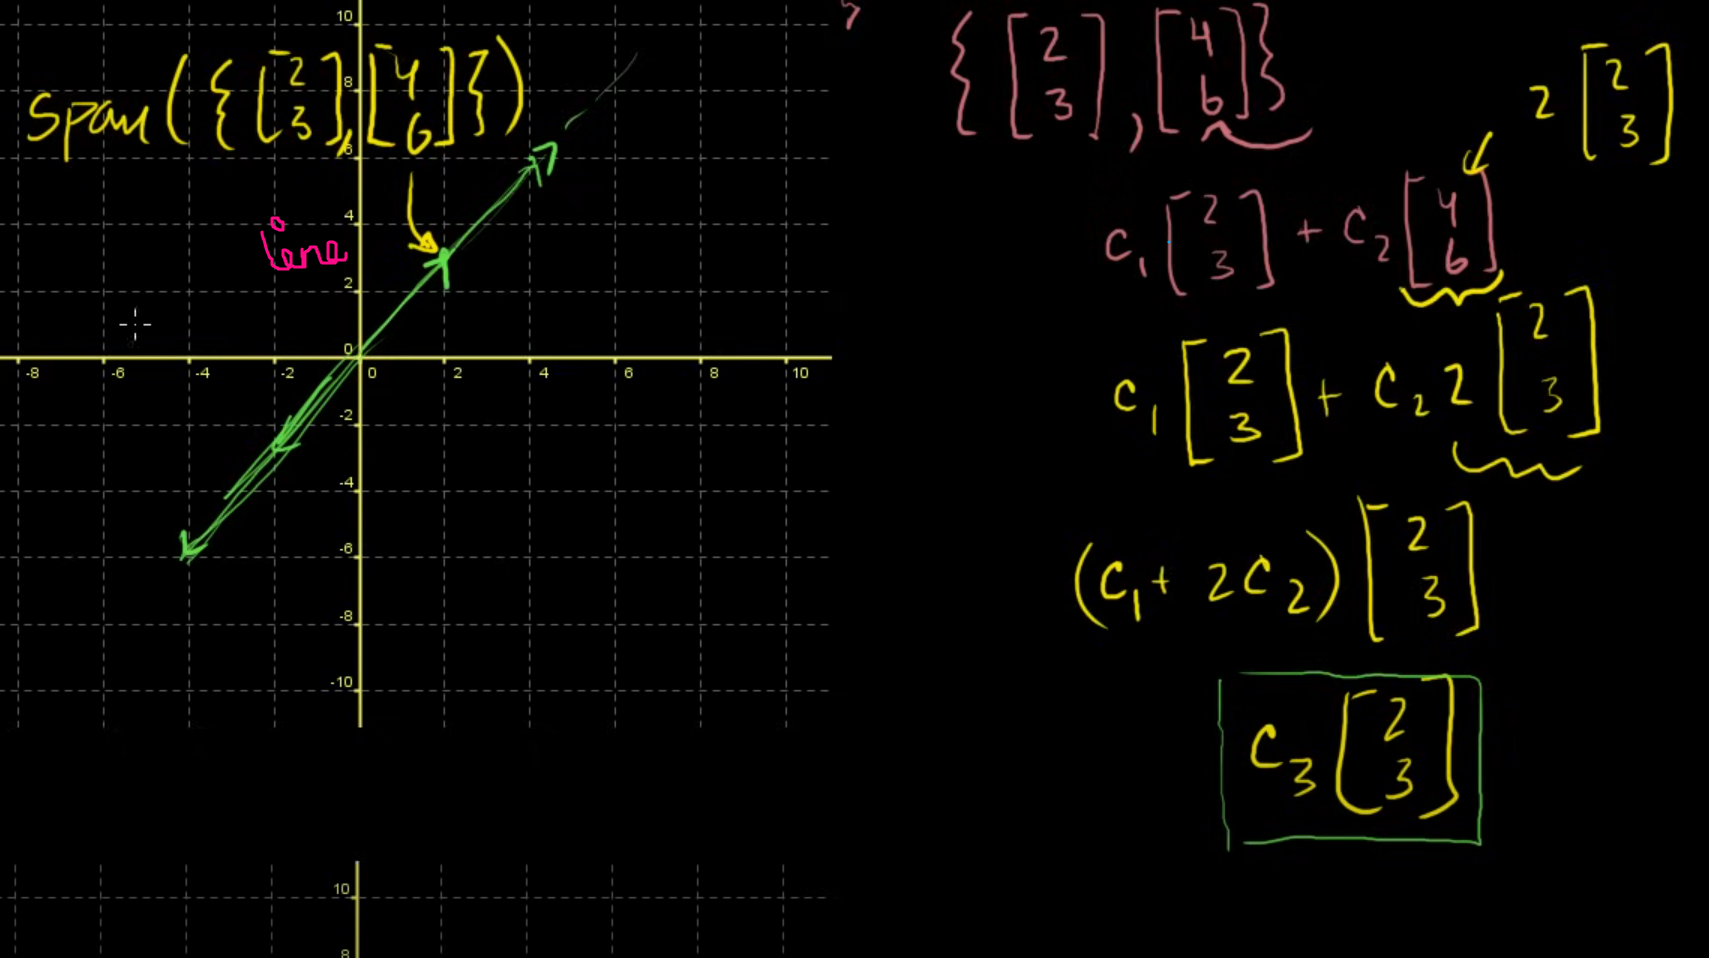 span({[2 3], [4 6]})
line
10
8
6
4
2
0
-8 -6 -4 -2 0 2 4 6 8 10
-2
-4
-6
-8
-10
10
8
{[2 3], [4 6]}
2 [2 3]
c₁ [2 3] + c₂ [4 6]
c₁ [2 3] + c₂ 2 [2 3]
(c₁ + 2c₂) [2 3]
c₃ [2 3]